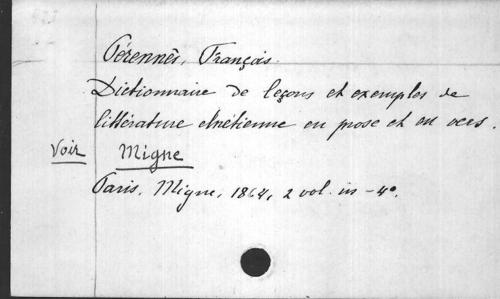 Pérennès, François.
Dictionnaire de leçons et exemples de
littérature chrétienne en prose et en vers.
Voir Migne
Paris, Migne, 1864, 2 vol. in-4°.